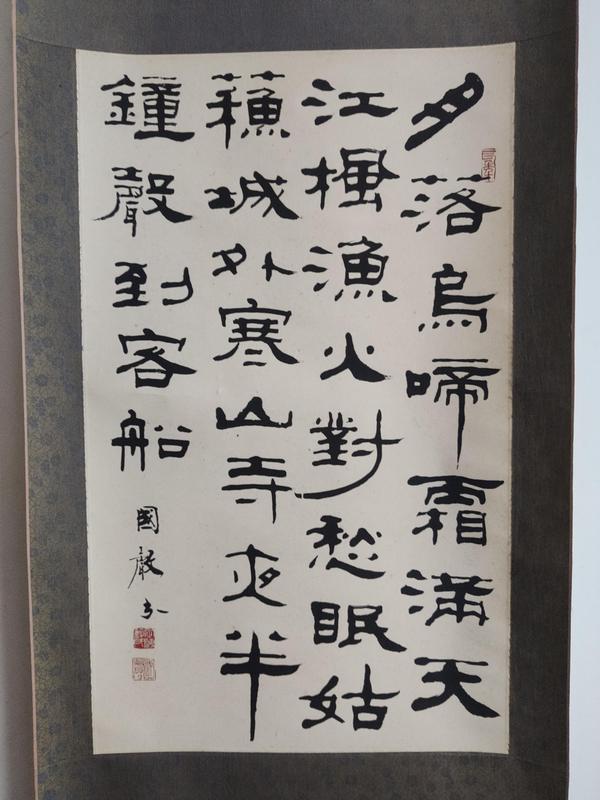 月落烏啼霜滿天
江楓漁火對愁眠姑
蘓城外寒山寺夜半
鐘聲到客船
國嚴书